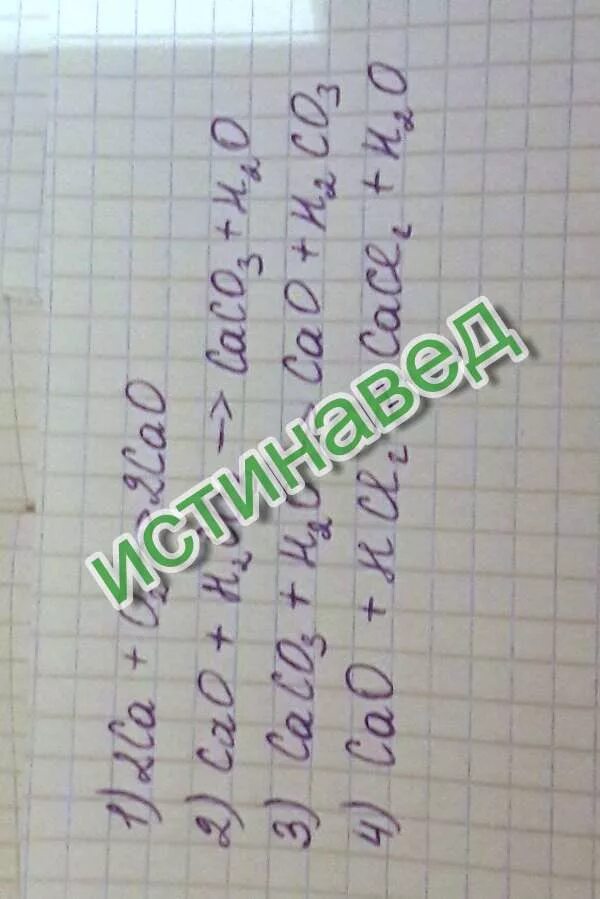 1) 2Ca + O₂ → 2CaO
2) CaO + H₂ → CaCO₃ + H₂O
3) CaCO₃ + H₂ CaO + H₂CO₃
4) CaO + HCl₂ CaCl₂ + H₂O
ИСТИНАВЕД